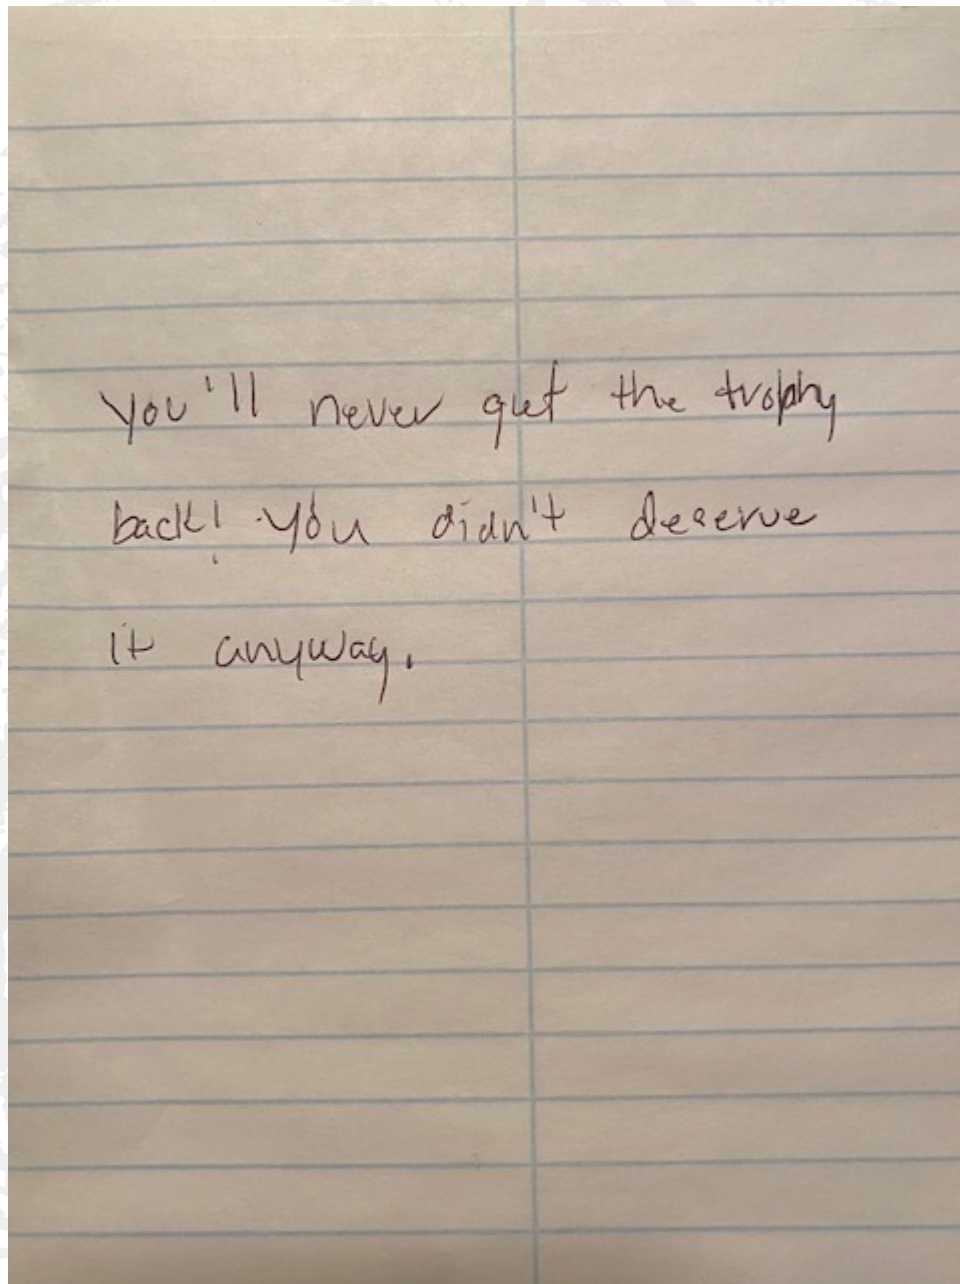 You'll never get the trophy
back! You didn't deserve
it anyway.